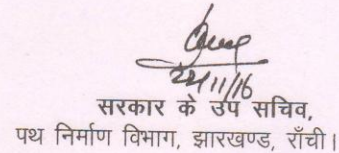 24/11/16
सरकार के उप सचिव,
पथ निर्माण विभाग, झारखण्ड, राँची।